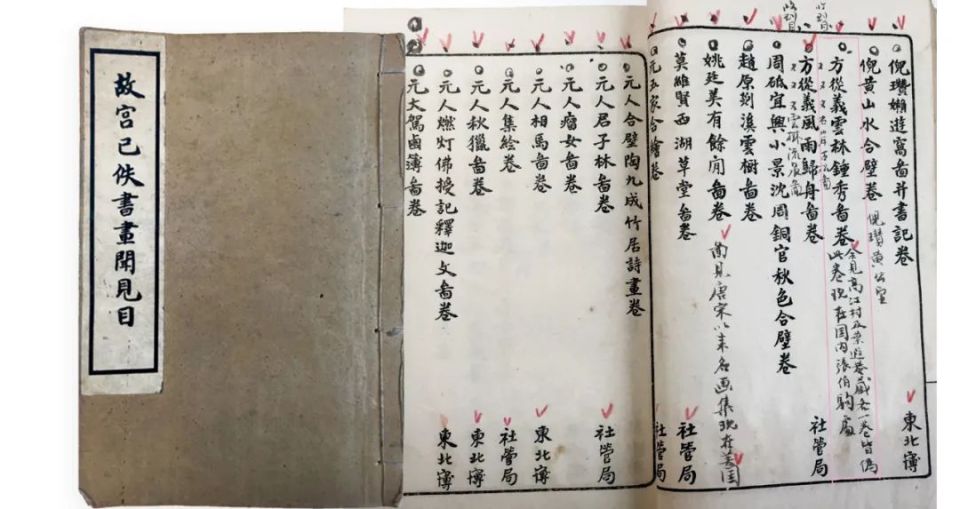 故宮已佚書畫聞見目
倪瓚嬾遊窩啚并書記卷 東北博
倪黃山水合璧卷 倪瓚 黃公望
方從義雲林鍾秀啚卷 此卷現在国内張伯駒處
余見高江村
方從義風雨歸舟啚卷 社管局
周砥宜興小景沈周銅官秋色合璧卷
趙原剡溪雲樹啚卷
姚廷美有餘閒啚卷 啚見唐宋以来名画集現在美国
莫維賢西湖草堂啚卷 社管局
元五家合繪卷 社管局
元人合璧陶九成竹居詩畫卷
元人君子林啚卷 社管局
元人瘤女啚卷
元人相馬啚卷 東北博
元人集繪卷 社管局
元人秋獵啚卷 東北博
元人燃灯佛授記釋迦文啚卷 東北博
元大駕鹵簿啚卷